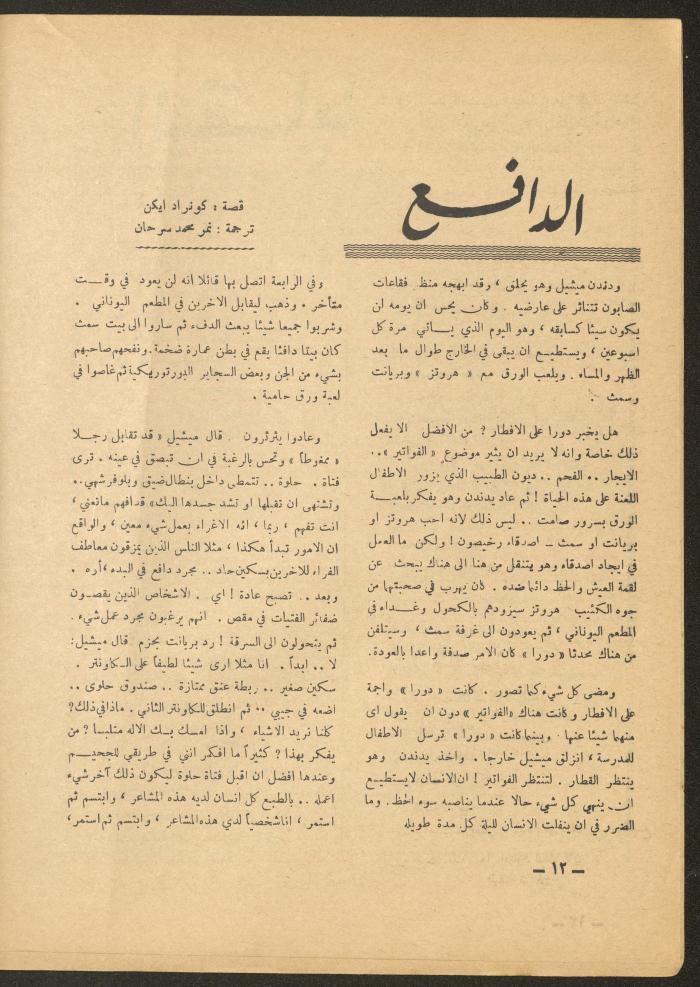 الدافع
قصة : كونراد ايكن
ترجمة : نمر محمد سرحان
ودندن ميشيل وهو يحلق ، وقد ابهجه منظر فقاعات
الصابون تتناثر على عارضيه . وكان يحس ان يومه لن
يكون سيئا كسابقه ، وهو اليوم الذي يـاتي مرة كل
اسبوعين ، ويستطيع ان يبقى في الخارج طوال ما بعد
الظهر والمساء . ويلعب الورق مع « هروتز » وبريانت
وسمث .
هل يخبر دورا على الافطار ? من الافضل الا يفعل
ذلك خاصة وانه لا يريد ان يثير موضوع « الفواتير » ..
الايجار .. الفحم .. ديون الطبيب الذي يزور الاطفال
اللعنة على هذه الحياة ! ثم عاد يدندن وهو يفكر بلعبـة
الورق بسرور صامت .. ليس ذلك لانه احب هروتز او
بريانت او سمث ـ اصدقاء رخيصون ! ولكن ما العمل
في ايجاد اصدقاء وهو يتنقل من هنا الى هناك يبحث عن
لقمة العيش والحظ دائما ضده . كان يهرب في صحبتها من
جوه الكئيب هروتز سيزودهم بالكحول وغـداء في
المطعم اليوناني ، ثم يعودون الى غرفة سمث ، وسيتلفن
من هناك محدثا « دورا » كان الامر صدفة واعدا بالعودة.
ومضى كل شيء كما تصور . كانت « دورا » واجمة
على الافطار وكانت هناك «الفواتير » دون ان يقول اى
منهما شيئا عنها . وبينما كانت « دورا » ترسل الاطفال
للمدرسة ، انزلق ميشيل خارجا . واخذ يدندن وهو
ينتظر القطار . لتنتظر الفواتير ! ان الانسان لايستطيـع
ان ينهي كل شيء حالا عندما يناصبه سوء الحظ . وما
الضرر في ان ينفلت الانسان لليلة كل مدة طويله
وفي الرابعة اتصل بها قائلا انه لن يعود في وقـت
متأخر . وذهب ليقابل الاخرين في المطعم اليوناني .
وشربوا جميعا شيئا يبعث الدفء ثم ساروا الى بيت سمث
كان بيتا دافئا يقع في بطن عمارة ضخمة. ونفحهم صاحبهم
بشيء من الجن وبعض السجاير البورتوريكية ثم غاصوا في
لعبة ورق حامية .
وعادوا يثرثرون . قال ميشيل « قد تقابل رجـلا
« ممغوطا » وتحس بالرغبة في ان تبصق في عينه . ترى
فتاة . حلوة .. تتمطى داخل بنطال ضيق وبلوفر شهي ..
وتشتهى ان تقبلها او تشد جسدها اليك» قد افهم ما تعني ،
انت تفهم ، ربما ، انه الاغراء بعمل شيء معين ، والواقع
ان الامور تبدأ هكذا ، مثلا الناس الذين يمزقون معاطف
الفراء للاخرين بسكين حاد .. مجرد دافع في البدء ،أره .
وبعد .. تصبح عادة ! اي . الاشخاص الذين يقصـون
ضفائر الفتيات في مقص . انهم يرغبون مجرد عمل شيء .
ثم يتحولون الى السرقة ! رد بريانت بحزم قال ميشيل:
لا .. ابداً . انا مثلا ارى شيئا لطيفاً على الـكاونتر .
سكين صغير .. ربطة عنق ممتازة .. صندوق حلوى ..
اضعه في جيبي .. ثم انطلق للكاونتر الثاني . ماذا في ذلك؟
كلنا نريد الاشياء ، واذا امسك بـك الاله متلبسا ? من
يفكر بهذا ? كثيراً ما افكر انني في طريقي للجحيـم
وعندها افضل ان اقبل فتاة حلوة ليكون ذلك آخر شيء
اعمله .. بالطبع كل انسان لديه هذه المشاعر ، وابتسم ثم
استمر ، انا شخصياً لدي هذه المشاعر ، وابتسم ثم استمر،
ـ ١٢ ـ